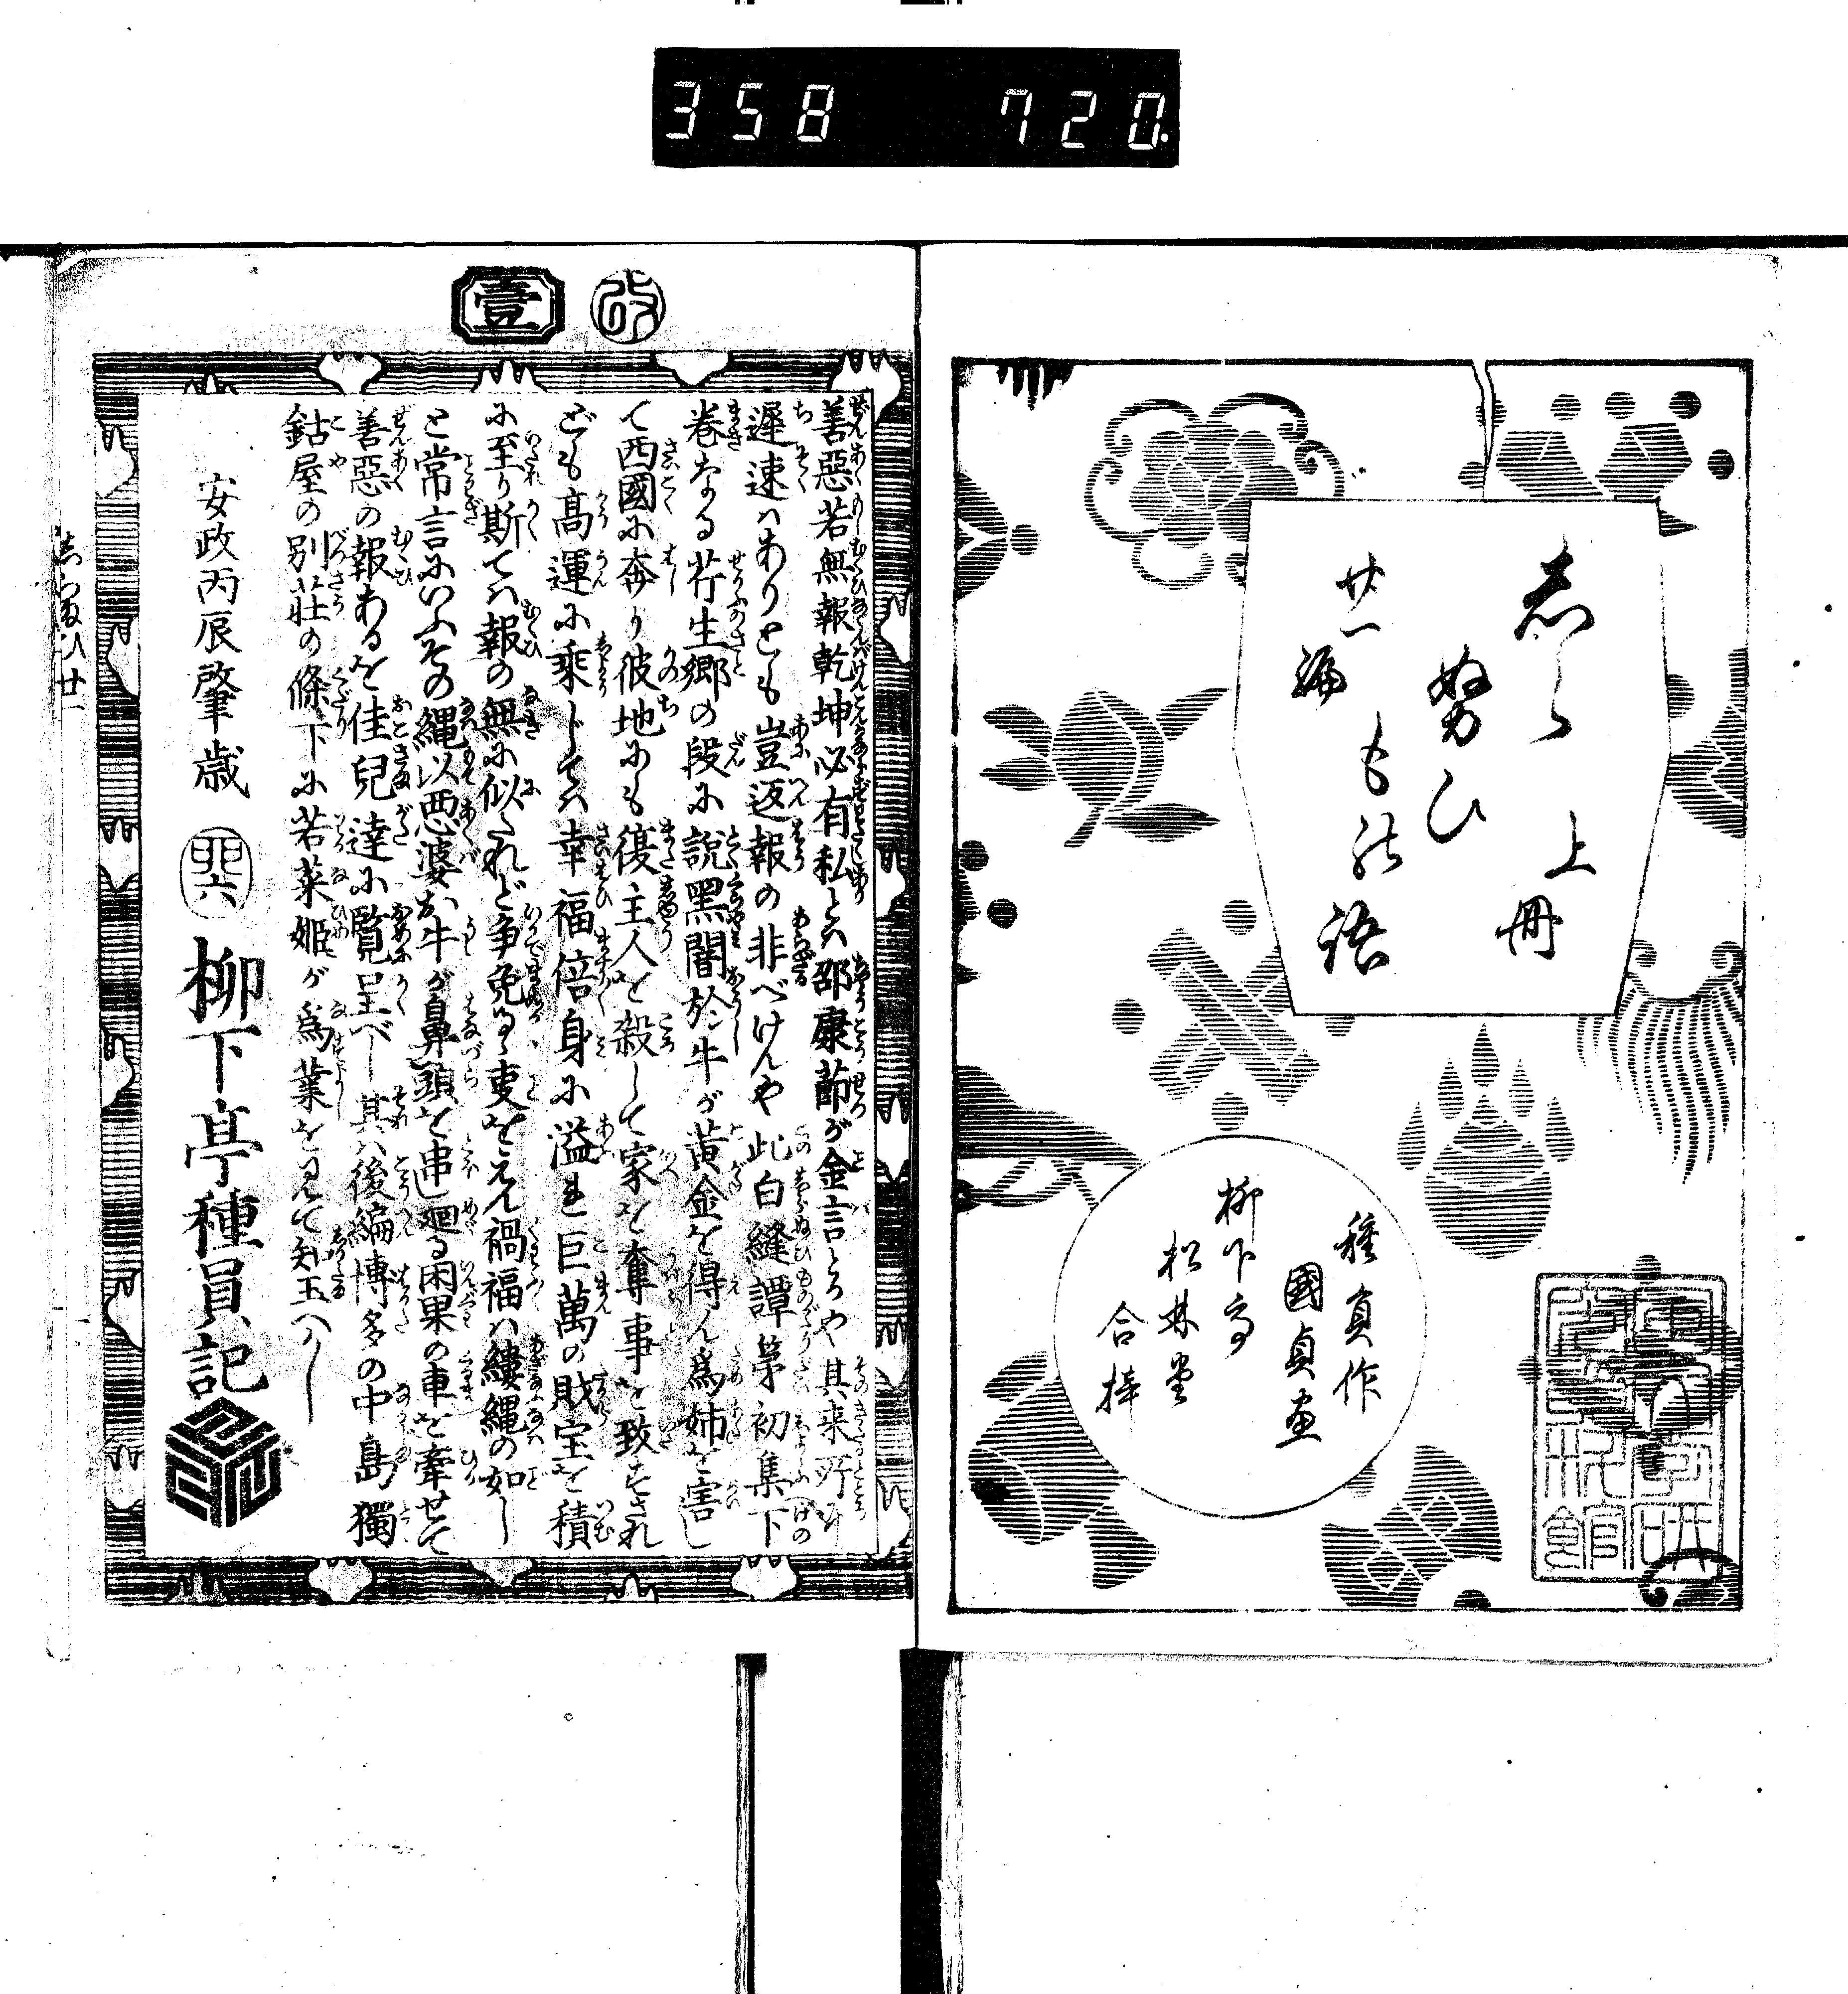 358 720.
志らぬひ
もの語
廿一編
上冊
種員作
國貞画
柳下亭
松林堂
合梓
改
壹
善惡若無報乾坤必有私とハ邵康節が金言とろや其来所に
遅速ハありとも豈返報の非べけんや此白縫譚第初集下
巻なる芹生郷の段に説黑闇於牛が黄金を得ん為姉を害し
て西國に奔り彼地にも復主人を殺して家を奪事を致すされ
ども髙運に乘じてハ幸福倍身に溢れ巨萬の財宝を積
に至り斯てハ報の無に似たれど争免るゝ事をえん禍福ハ縷縄の如し
と常言にいふその縄以悪婆お牛が鼻頭を串し廻る因果の車を牽せて
善惡の報あるを佳兒達に覧呈べし其ハ後編博多の中島獨
鈷屋の別荘の條下に若菜姫が為業を見て知玉へかし
安政丙辰肇歳
柳下亭種員記
志らぬひ廿一